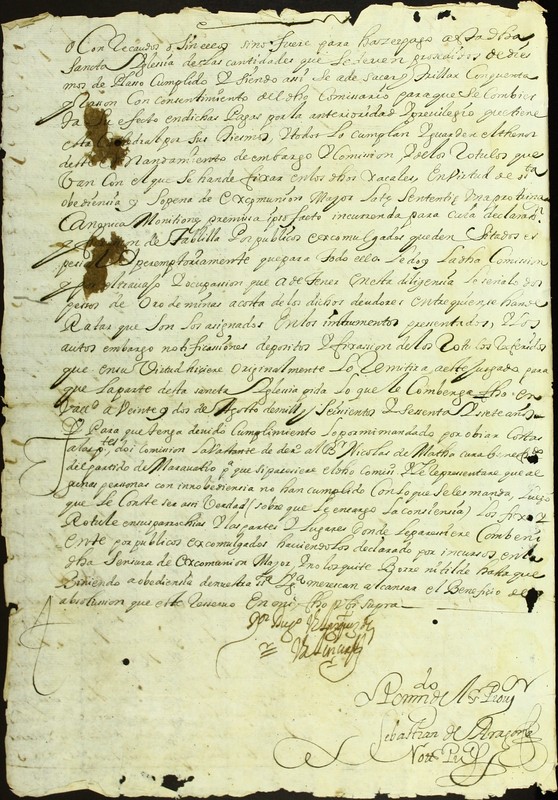 o Con Recaudos o sin ellos sino fuere para haser pago a esta dha
Sancta Iglesia de las cantidades que se deven prosedidos de dies
mos de Plaso Cumplido y siendo assi se a de sacar y Trillar Cinquenta
y Rason Con consentimiento del dho Comissario para que se Combier
ta en efecto en dichas Pagas por la anterioridad y previlegio que tiene
esta Cathedral por sus Diesmos, y todos lo cumplan y guarden el thenor
deste Mandamiento de embargo y Comision y de los Rotulos que
van Con el que se han de fixar en los dhos Reales En virtud de sta
obediensia y sopena de Excomunion Mayor Late Sententie Una protrina
Canonica Monitione premissa ipso facto incurrenda para cuia declarasn
de Tablilla Por publicos excomulgados queden Sitados es
peremptoriamente que para todo ello se le doy la dha Comission
y trauajo y Ocupassion que a de tener en esta diligensia le señalo dos
pessos de Oro de minas a costa de los dichos deudores entre quien se han de
Ratar que son los asignados En los instrumentos presentados, y los
autos embargo notificassiones depositos y fixasion de los Rotulos referidos
que en su Virtud hisiere Originalmente Lo Remitira a este Jusgado para
que la parte desta sancta Iglesia pida lo que le Combenga fho en
Vallid a Veinte y dos de Agosto de mill y Seisientos y Sesenta y Siete años
Y Para que tenga devido Cumplimiento lo por mi mandado por obiar Costas
a las ptes doi Comision la vastante de dro Al Br Nicolas de Matha cura benefdo
del partido de Maravatio pa que si paresiere el dho Comisio y le representare que al
gunas personas con innobediensia no han cumplido Con lo que se les manda, Luego
que le Conste ser assi Verdad (sobre que le encargo la Consiensia) Los fixe y
Rotule en sus parrochias y las partes y Lugares donde le paresiere Combeni
ente por publicos excomulgados haviendolos declarado por incursos en la
dha Sensura de Excomunion Mayor y no los quite Borre ni tilde hasta que
Viniendo a obediensia de nuestra sta Iga meresscan alcansar el Benefisio de la
absolusion que este Reservo En mi fho vt supra
Velasquez de
Valencia
Por mdo del Sr Prour
Sebastian de Aragon
Nott Puco